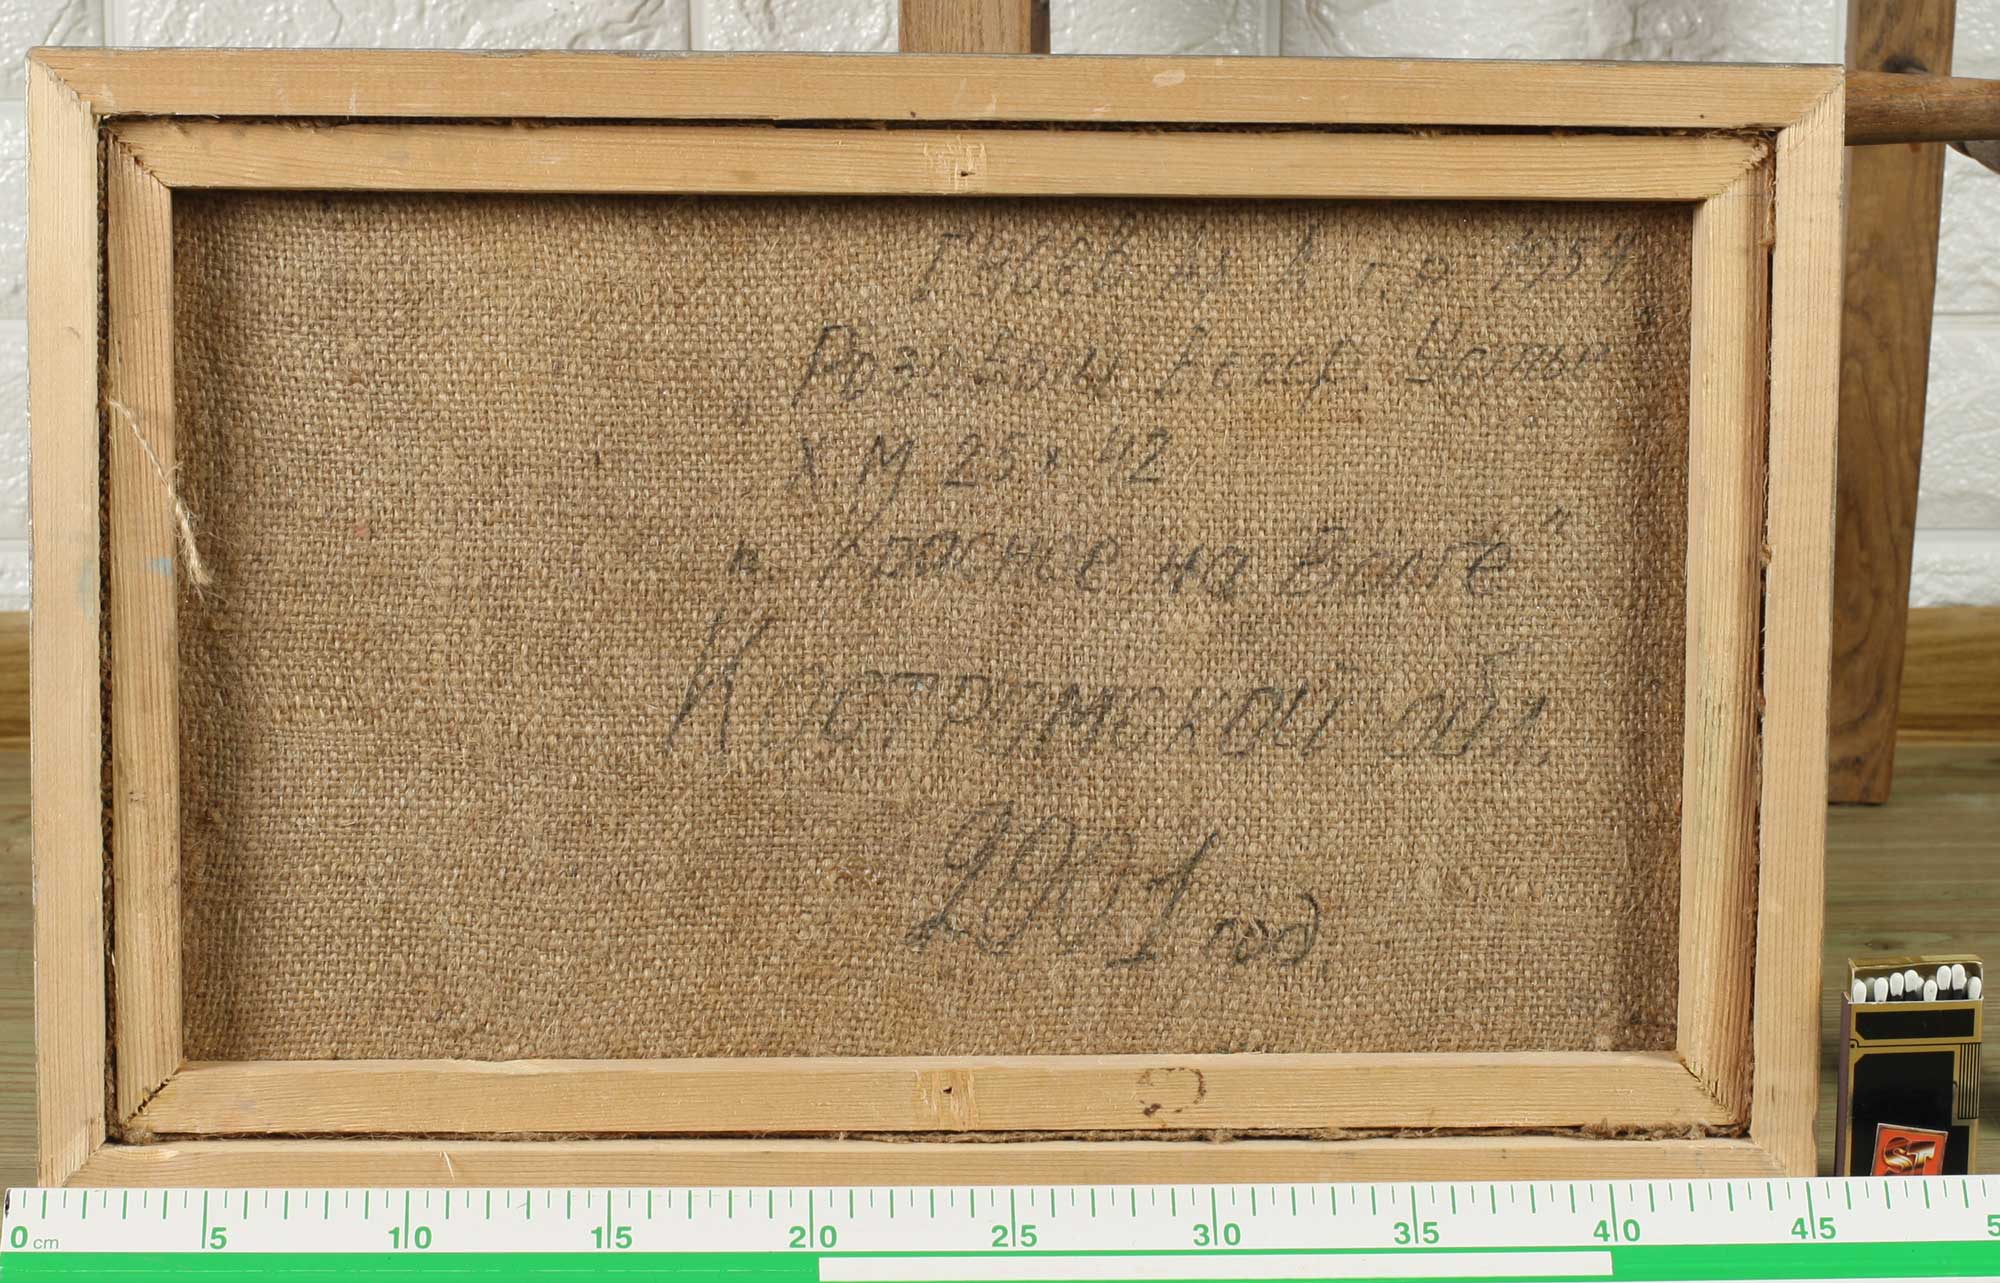 Гусев 1954
„Розовый
Х М 25 х 42
„Красное на Волге"
Костромской обл.
2001 год.
ST
0 cm 5 10 15 20 25 30 35 40 45 5